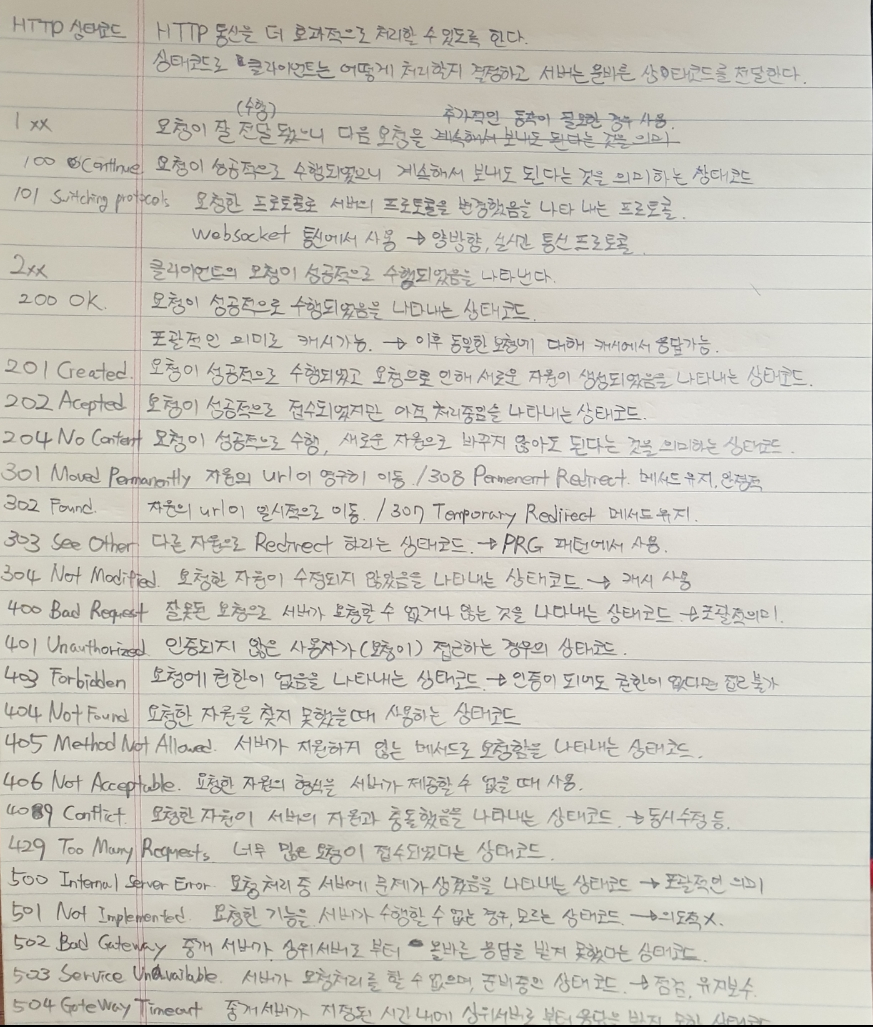 HTTP 상태코드 HTTP 통신을 더 효과적으로 처리할 수 있도록 한다.
상태코드로 클라이언트는 어떻게 처리할지 결정하고 서버는 올바른 상태코드를 전달한다.
(수행) 추가적인 동작이 필요한 경우 사용.
1xx 요청이 잘 전달 됐으니 다음 요청을 계속해서 보내도 된다는 것을 의미
100 Continue 요청이 성공적으로 수행되었으니 계속해서 보내도 된다는 것을 의미하는 상태코드
101 Switching protocols 요청한 프로토콜로 서버의 프로토콜을 변경했음을 나타내는 프로토콜.
Websocket 통신에서 사용 → 양방향, 실시간 통신 프로토콜
2xx 클라이언트의 요청이 성공적으로 수행되었음을 나타낸다.
200 OK. 요청이 성공적으로 수행되었음을 나타내는 상태코드.
포괄적인 의미로 캐시가능. → 이후 동일한 요청에 대해 캐시에서 응답가능.
201 Created. 요청이 성공적으로 수행되었고 요청으로 인해 새로운 자원이 생성되었음을 나타내는 상태코드.
202 Acepted 요청이 성공적으로 접수되었지만 아직 처리중임을 나타내는 상태코드.
204 No Content 요청이 성공적으로 수행, 새로운 자원으로 바꾸지 않아도 된다는 것을 의미하는 상태코드
301 Moved Permanantly 자원의 url이 영구히 이동. /308 Permenent Redirect. 메서드 유지, 안정적
302 Found. 자원의 url이 일시적으로 이동. /307 Temporary Redirect 메서드 유지.
303 See Other 다른 자원으로 Redirect 하라는 상태코드. → PRG 패턴에서 사용.
304 Not Modified. 요청한 자원이 수정되지 않았음을 나타내는 상태코드 → 캐시 사용
400 Bad Request 잘못된 요청으로 서버가 요청할 수 없거나 않는 것을 나타내는 상태코드 → 포괄적의미.
401 Unauthorized. 인증되지 않은 사용자가(요청이) 접근하는 경우의 상태코드.
403 Forbidden 요청에 권한이 없음을 나타내는 상태코드. → 인증이 되어도 권한이 없다면 접근불가
404 Not Found 요청한 자원을 찾지 못했을때 사용하는 상태코드
405 Method Not Allowed. 서버가 지원하지 않는 메서드로 요청함을 나타내는 상태코드.
406 Not Acceptable. 요청한 자원의 형식을 서버가 제공할 수 없을 때 사용.
409 Conflict. 요청한 자원이 서버의 자원과 충돌했음을 나타내는 상태코드. → 동시수정 등.
429 Too Many Requests. 너무 많은 요청이 접수되었다는 상태코드.
500 Internal Server Error. 요청 처리 중 서버에 문제가 생겼음을 나타내는 상태코드 → 포괄적인 의미
501 Not Implemented. 요청한 기능을 서버가 수행할 수 없는 경우, 모르는 상태코드 → 의도적 X.
502 Bad Gateway 중개 서버가 상위서버로 부터 올바른 응답을 받지 못했다는 상태코드.
503 Service Unavailable. 서버가 요청처리를 할 수 없으며, 준비중인 상태코드. → 점검, 유지보수.
504 GateWay Timeout 중개서버가 지정된 시간 내에 상위서버로 부터 응답을 받지 못한 상태코드